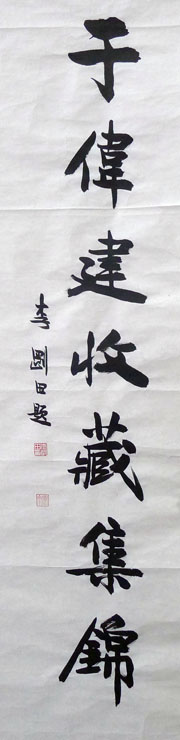 于偉建收藏集錦
李剛田題